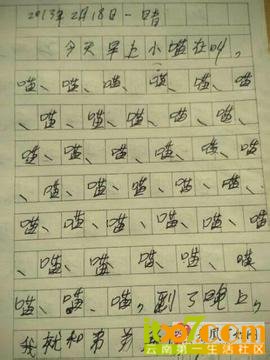 2013年2月18日 一 晴
今天早上小喵在叫，
喵、喵、喵、喵、喵、喵
、喵、喵、喵、喵、喵、
喵、喵、喵、喵、喵、喵
、喵、喵、喵、喵、喵、
喵、喵、喵、喵、喵、喵
、喵、喵、喵、喵、喵
喵、喵、喵，到了晚上，
我就和弟弟
云南第一生活社区